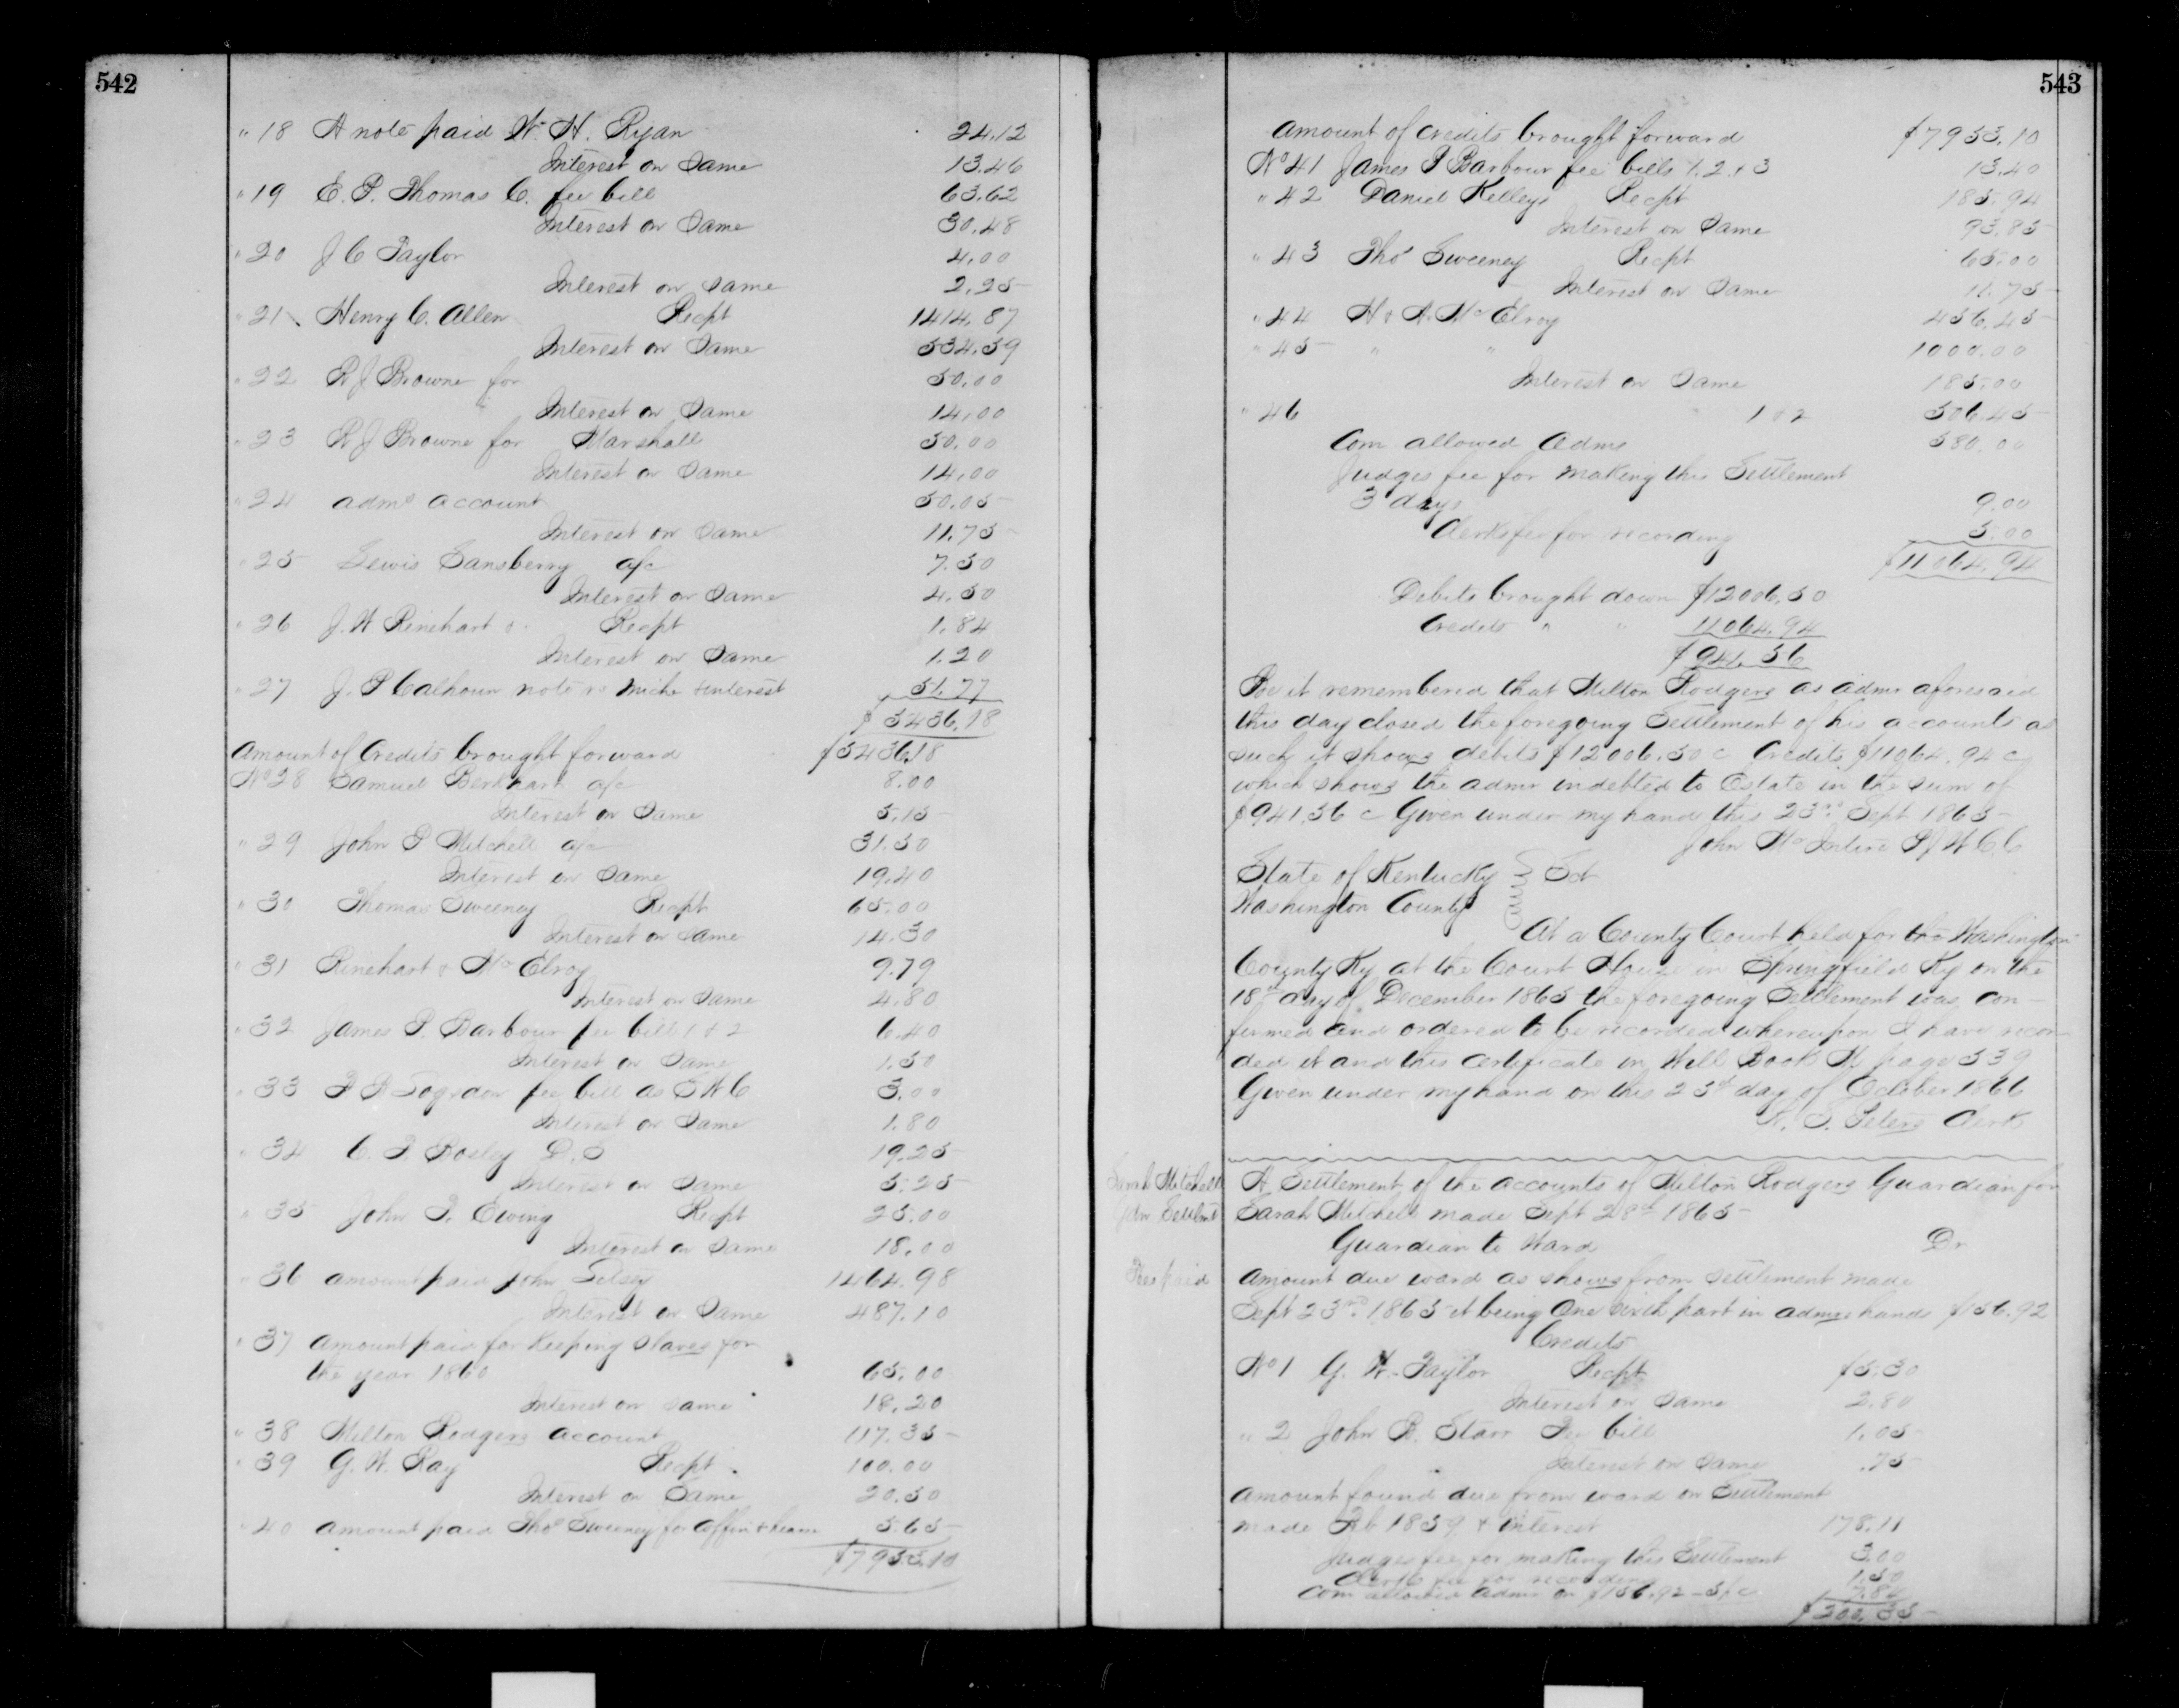 542
" 18 A note paid W. H. Ryan 24.12
Interest on Same 13.46
" 19 E. P. Thomas C. fee bill 63.62
Interest on Same 30.48
" 20 J C Taylor 4.00
Interest on Same 2.25
" 21 Henry C. Allen Recpt 1414.87
Interest on Same 534.59
" 22 R J Browne for 50.00
Interest on Same 14.00
" 23 R J Browne for Marshall 50.00
Interest on Same 14.00
" 24 admr account 50.05
Interest on Same 11.75
" 25 Lewis Sansberry a/c 7.50
Interest on Same 4.50
" 26 J. W Rinehart & Recpt 1.84
Interest on Same 1.20
" 27 J. P Calhoun note & interest 51.77
$5436.18
Amount of Credits brought forward $5436.18
No 28 Samuel Berkhart a/c 8.00
Interest on Same 5.15
" 29 John P Mitchell a/c 31.50
Interest on Same 19.40
" 30 Thomas Sweeney Recpt 65.00
Interest on Same 14.30
" 31 Rinehart & McElroy 9.79
Interest on Same 4.80
" 32 James P. Barbour fee bill 1 & 2 6.40
Interest on Same 1.50
" 33 fee bill as 3.00
Interest on Same 1.80
" 34 C. T Bosley D. S 19.25
Interest on Same 5.25
" 35 John T. Ewing Recpt 25.00
Interest on Same 18.00
" 36 amount paid John 1464.98
Interest on Same 487.10
" 37 amount paid for Keeping Slaves for
the year 1860 65.00
Interest on same 18.20
" 38 Milton Rodgers account 117.35
" 39 G. W. Ray Recpt 100.00
Interest on Same 20.50
" 40 amount paid Thos Sweeney for Coffin & hearse 5.65
$7953.10
543
Amount of Credits brought forward $7953.10
No 41 James P Barbour fee bills 1. 2. & 3 13.40
" 42 Daniel Kelleys Recpt 185.94
Interest on Same 93.85
" 43 Thos Sweeney Recpt 65.00
Interest on Same 11.75
" 44 H & A. McElroy 456.45
" 45 " " 1000.00
Interest on Same 185.00
" 46 1 & 2 506.45
Com allowed Admr 580.00
Judges fee for making this Settlement
3 days 9.00
Clerks fee for recording 5.00
$11064.94
Debits brought down $12006.50
Credits " " 11064.94
$941.56
Be it remembered that Milton Rodgers as admr aforesaid
this day closed the foregoing Settlement of his accounts as
such it shows debits $12006.50 c Credits $11064.94 c
which shows the admr indebted to Estate in the sum of
$941.56 c Given under my hand this 23rd Sept 1865
John McIntire P J W C C
State of Kentucky Sct
Washington County
At a County Court held for the Washington
County Ky at the Court House in Springfield Ky on the
18th day of December 1865 the foregoing Settlement was con-
firmed and ordered to be recorded whereupon I have recor
ded it and this Certificate in Will Book K page 539
Given under my hand on this 23rd day of October 1866
W. S. Peters Clerk
Sarah Mitchell
Gdn Settlmt
Fee paid
A Settlement of the accounts of Milton Rodgers Guardian for
Sarah Mitchell made Sept 28th 1865
Guardian to Ward Dr
Amount due ward as shows from settlement made
Sept 23rd 1865 it being One sixth part in admrs hands $156.92
Credits
No 1 G. W. Taylor Recpt $5.30
Interest on Same 2.80
" 2 John B. Starr Fee bill 1.05
Interest on Same .75
Amount found due from ward on Settlement
made Feb 1859 & interest 178.11
Judges fee for making this Settlement 3.00
Clerks fee for recording 1.50
Com allowed admr on $156.92 - 5 pc 7.84
$200.35